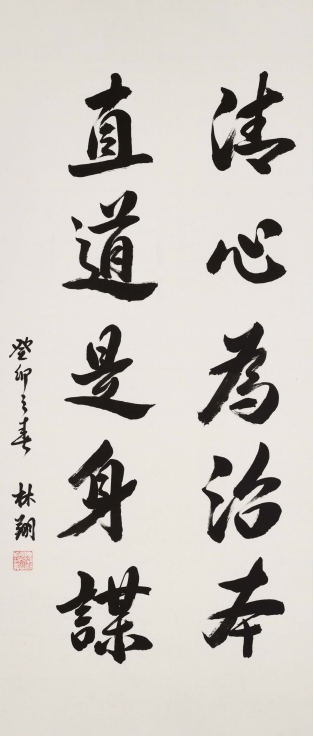 清心為治本
直道是身謀
癸卯之春 林翔